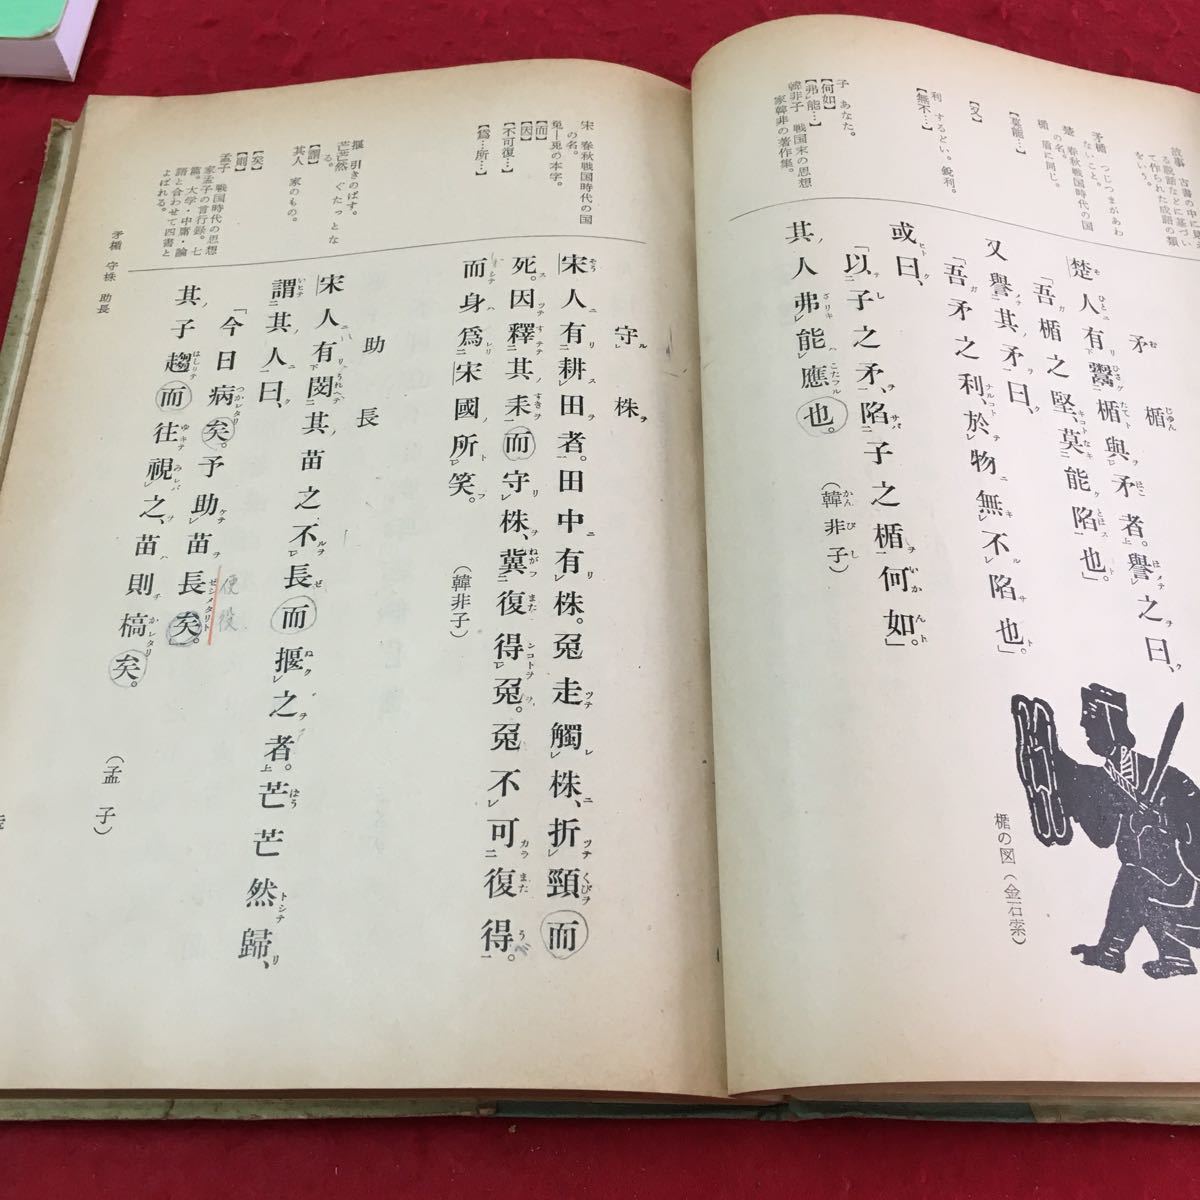 故事 古書の中に見え
る説話などに基づい
て作られた成語の類
をいう。
矛楯 つじつまがあわ
ないこと。
楚 春秋戦国時代の国
の名。
楯 盾に同じ。
【莫能…】
【又】
利 するどい。鋭利。
【無不…】
子 あなた。
【何如】
【弗能…】
韓非子 戦国末の思想
家韓非の著作集。
矛楯
楚人有鬻楯與矛者。譽之曰、
「吾楯之堅、莫能陷也。」
又譽其矛曰、
「吾矛之利、於物無不陷也。」
或曰、
「以子之矛、陷子之楯何如。」
其人弗能應也。
(韓非子)
楯の図(金石索)
宋 春秋戦国時代の国
の名。
兔―兎の本字。
【而】
【因】
【不可復…】
【爲…所…】
揠 引きのばす。
芒芒然 ぐたっとな
る。
【謂】
其人 家のもの。
【矣】
【則】
孟子 戦国時代の思想
家孟子の言行録。七
篇。大学・中庸・論
語と合わせて四書と
よばれる。
守株
宋人有耕田者。田中有株。兔走觸株、折頸而
死。因釋其耒而守株、冀復得兔。兔不可復得。
而身爲宋國所笑。
(韓非子)
助長
宋人有閔其苗之不長而揠之者。芒芒然歸、
謂其人曰、
「今日病矣。予助苗長矣。」
使役
其子趨而往視之、苗則槁矣。
(孟子)
矛楯 守株 助長